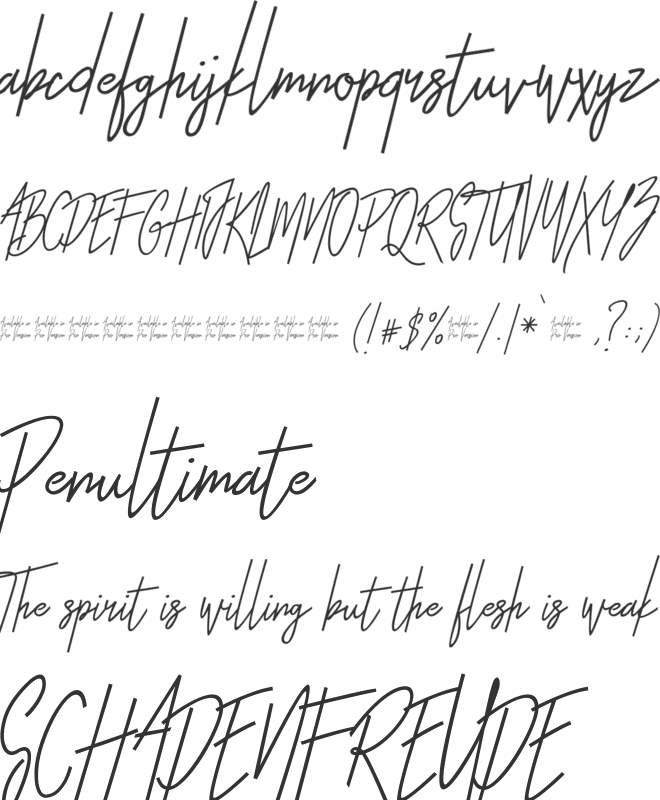 abcdefghijklmnopqrstuvwxyz
ABCDEFGHIJKLMNOPQRSTUVWXYZ
(!#$%/.|*`,?:;)
Penultimate
The spirit is willing but the flesh is weak
SCHADENFREUDE